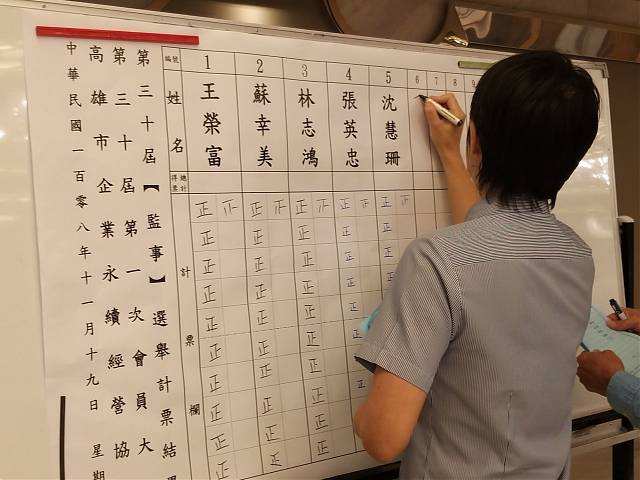 中華民國一百零八年十一月十九日 星期
高雄市企業永續經營協
第三十屆第一次會員大
第三十屆【監事】選舉計票結
編號 1 2 3 4 5 6 7 8 9
姓名 王榮富 蘇幸美 林志鴻 張英忠 沈慧珊
得票總計
計票欄
正 正 正 正 正
正 正 正 正 正
正 正 正 正 正
正 正 正 正 正
正 正 正 正
正 正 正 正
正 正 正
正 正 正 正
正 正 正
正 正 正